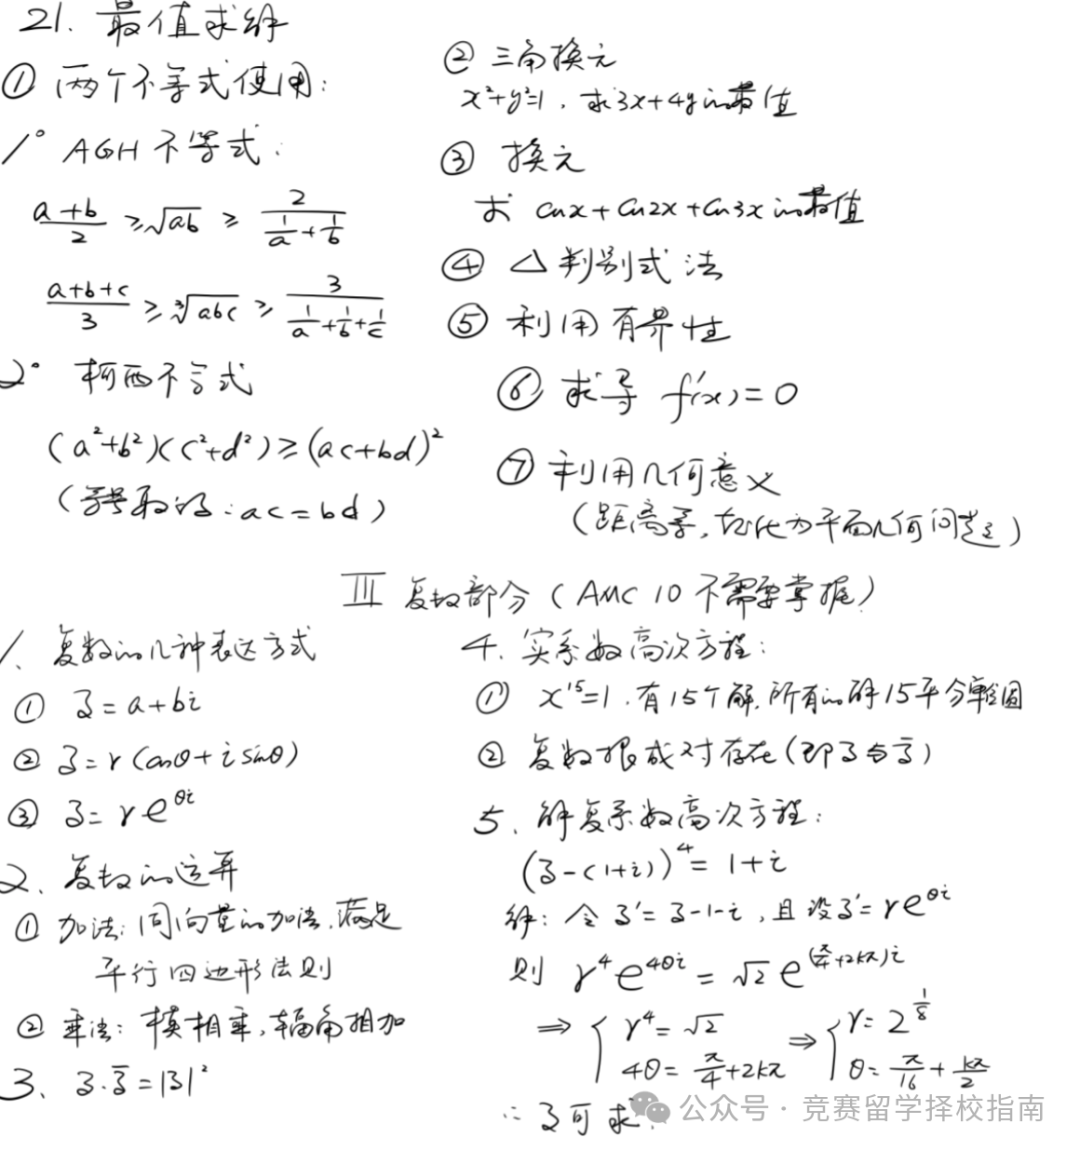 21. 最值求解
① 两个不等式使用:
1° AGH 不等式:
(a+b)/2 ≥ √ab ≥ 2/(1/a + 1/b)
(a+b+c)/3 ≥ ∛abc ≥ 3/(1/a + 1/b + 1/c)
2° 柯西不等式
(a²+b²)(c²+d²) ≥ (ac+bd)²
(等号取的: ac = bd)
② 三角换元
x²+y²=1, 求3x+4y的最值
③ 换元
求 cosx + cos2x + cos3x的最值
④ △判别式法
⑤ 利用有界性
⑥ 求导 f'(x) = 0
⑦ 利用几何意义
(距离等, 转化为平面几何问题)
III 复数部分 (AMC 10 不需要掌握)
1、复数的几种表达方式
① z = a + bi
② z = r(cosθ + i sinθ)
③ z = r e^(θi)
2、复数的运算
① 加法: 同向量的加法, 满足
平行四边形法则
② 乘法: 模相乘, 辐角相加
3、z·z̄ = |z|²
4、实系数高次方程:
① x¹⁵=1, 有15个解, 所有的解15平分单位圆
② 复数根成对存在(即z与z̄)
5、解复系数高次方程:
(z-(1+i))⁴ = 1+i
解: 令 z' = z-1-i, 且设z' = re^(θi)
则 r⁴e^(4θi) = √2 e^((π/4+2kπ)i)
⇒ { r⁴ = √2 ⇒ { r = 2^(1/8)
4θ = π/4 + 2kπ θ = π/16 + kπ/2
∴ z可求.
公众号 · 竞赛留学择校指南